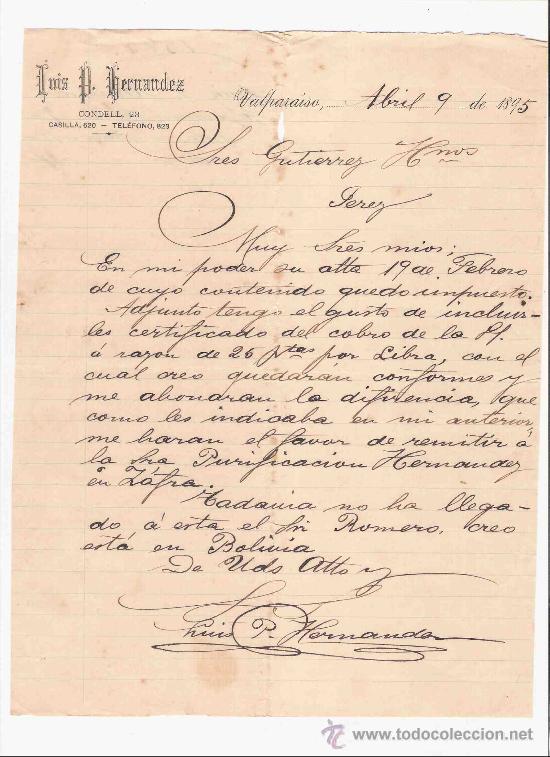 Luis P. Hernandez
CONDELL, 23
CASILLA, 620 — TELÉFONO, 823
Valparaiso, Abril 9 de 1895
Sres Gutierrez Hnos
Jerez
Muy Sres mios:
En mi poder su atta 19 de Febrero
de cuyo contenido quedo impuesto.
Adjunto tengo el gusto de incluir-
les certificado del cobro de la
á razon de 25 ptas por Libra, con el
cuál creo quedarán conformes y
me abondran la difrencia, que
como les indicaba en mi anterior,
me haran el favor de remitir á
la Sra Purificacion Hernandez
en Záfra.
Todavia no ha llega-
do á esta el Sr Romero, creo
está en Bolivia
De Uds Atto y
Luis P. Hernandez
www.todocoleccion.net